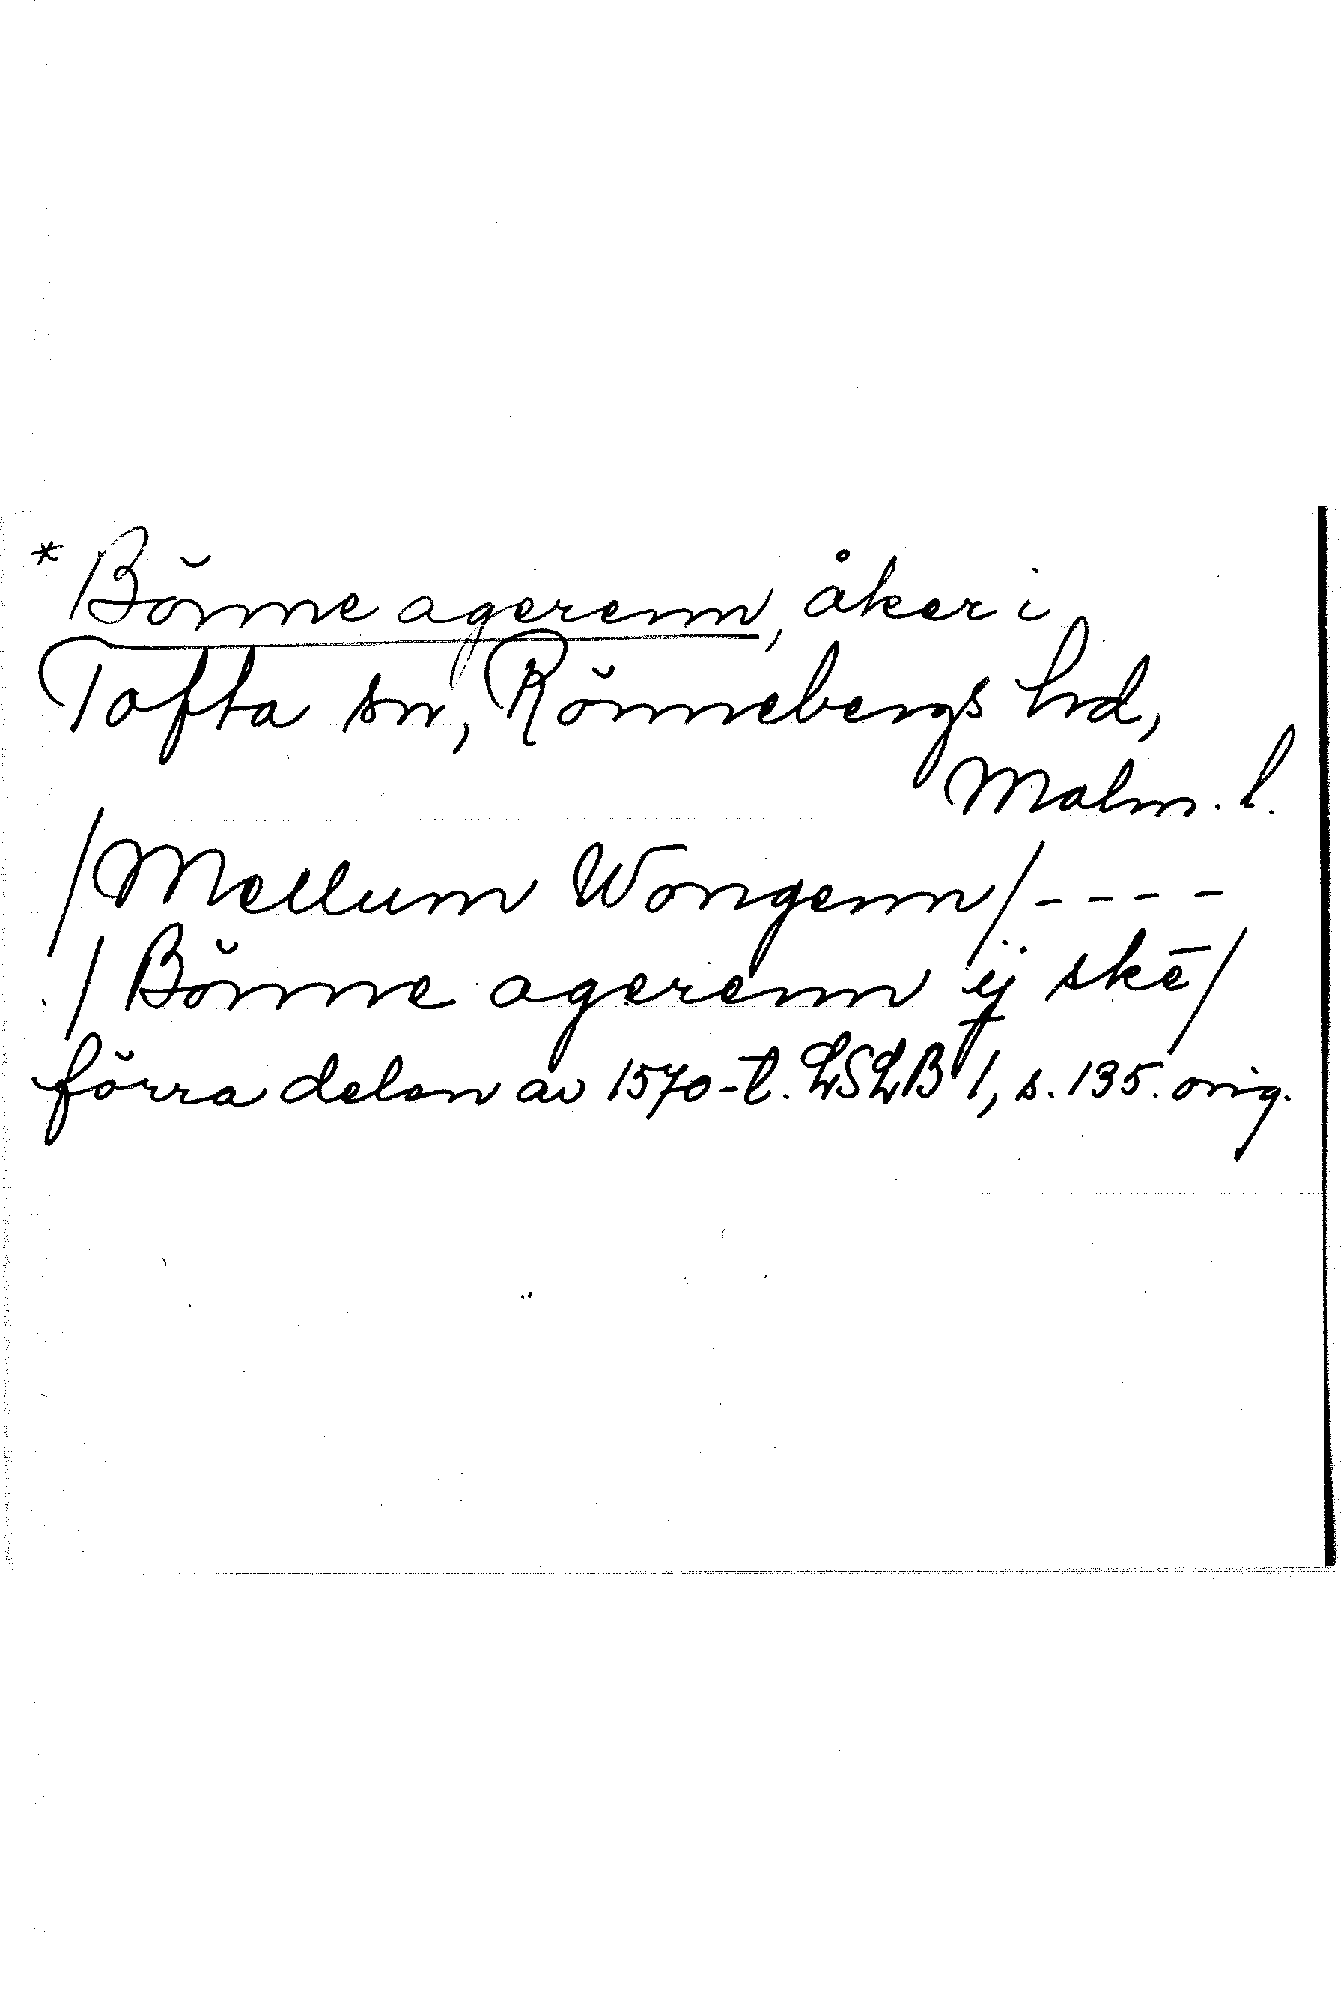 * Bönne agerenn, åker i
Tofta sn, Rönnebergs hd,
Malm. l.
/Mellum Wongenn/----
/Bönne agerenn ij skē/
förra delen av 1570-t. LSLB 1, s. 135. orig.